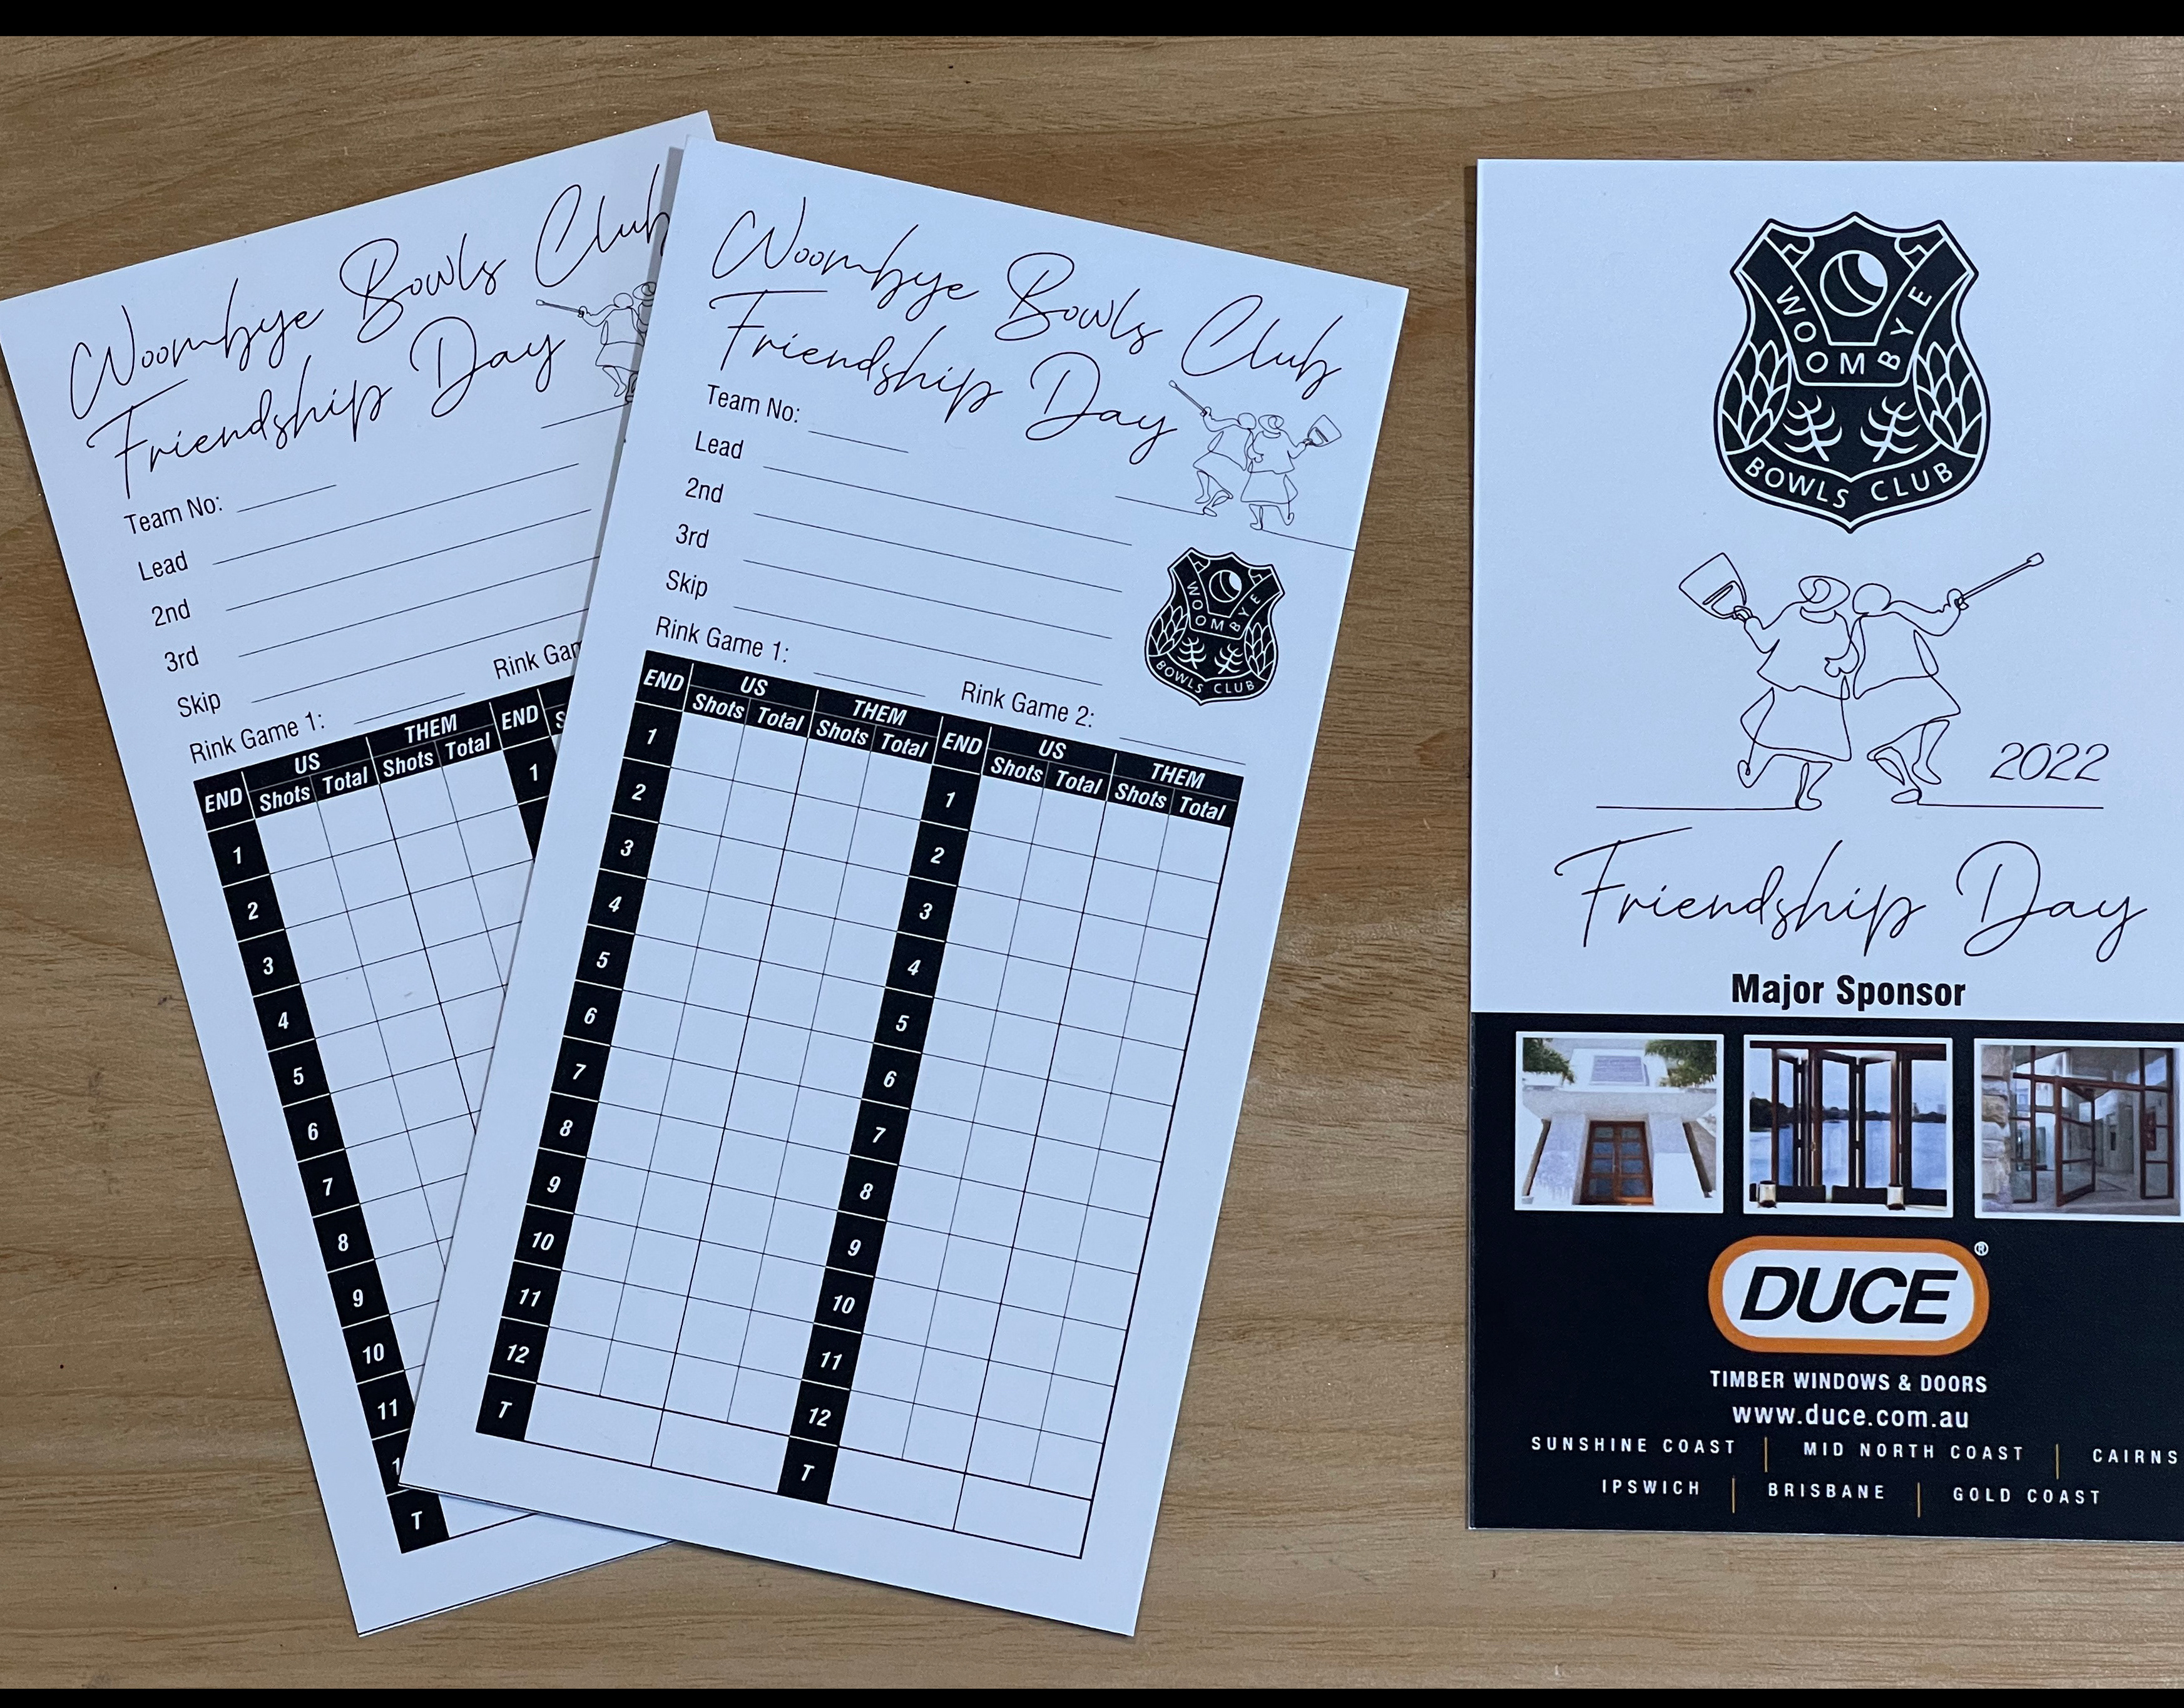 Woombye Bowls Club
Friendship Day
Team No:
Lead
2nd
3rd
Skip
Rink Game 1:
END US THEM END
Shots Total Shots Total
1 1
2
3
4
5
6
7
8
9
10
11
T
Woombye Bowls Club
Friendship Day
Team No:
Lead
2nd
3rd
Skip
WOOMBYE
BOWLS CLUB
Rink Game 1: Rink Game 2:
END US THEM END US THEM
Shots Total Shots Total Shots Total Shots Total
1 1
2 2
3 3
4 4
5 5
6 6
7 7
8 8
9 9
10 10
11 11
12 12
T T
WOOMBYE
BOWLS CLUB
2022
Friendship Day
Major Sponsor
DUCE®
TIMBER WINDOWS & DOORS
www.duce.com.au
SUNSHINE COAST | MID NORTH COAST | CAIRNS
IPSWICH | BRISBANE | GOLD COAST